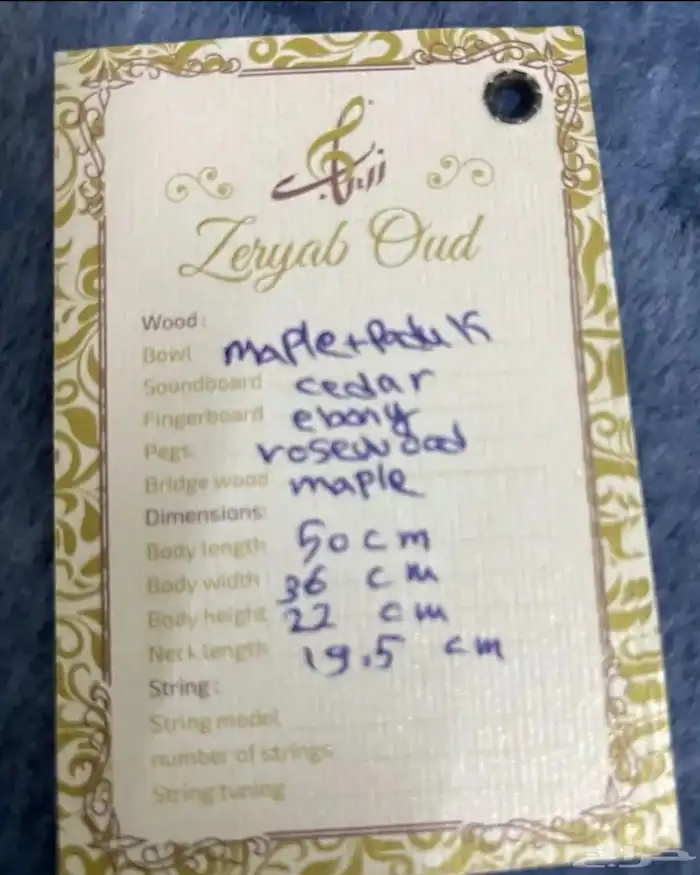 زرياب
Zeryab Oud
Wood:
Bowl maple+Paduk
Soundboard cedar
Fingerboard ebony
Pegs rosewood
Bridge wood maple
Dimensions:
Body length 50 cm
Body width 36 cm
Body height 22 cm
Neck length 19.5 cm
String:
String model
number of strings
String tuning
حراج